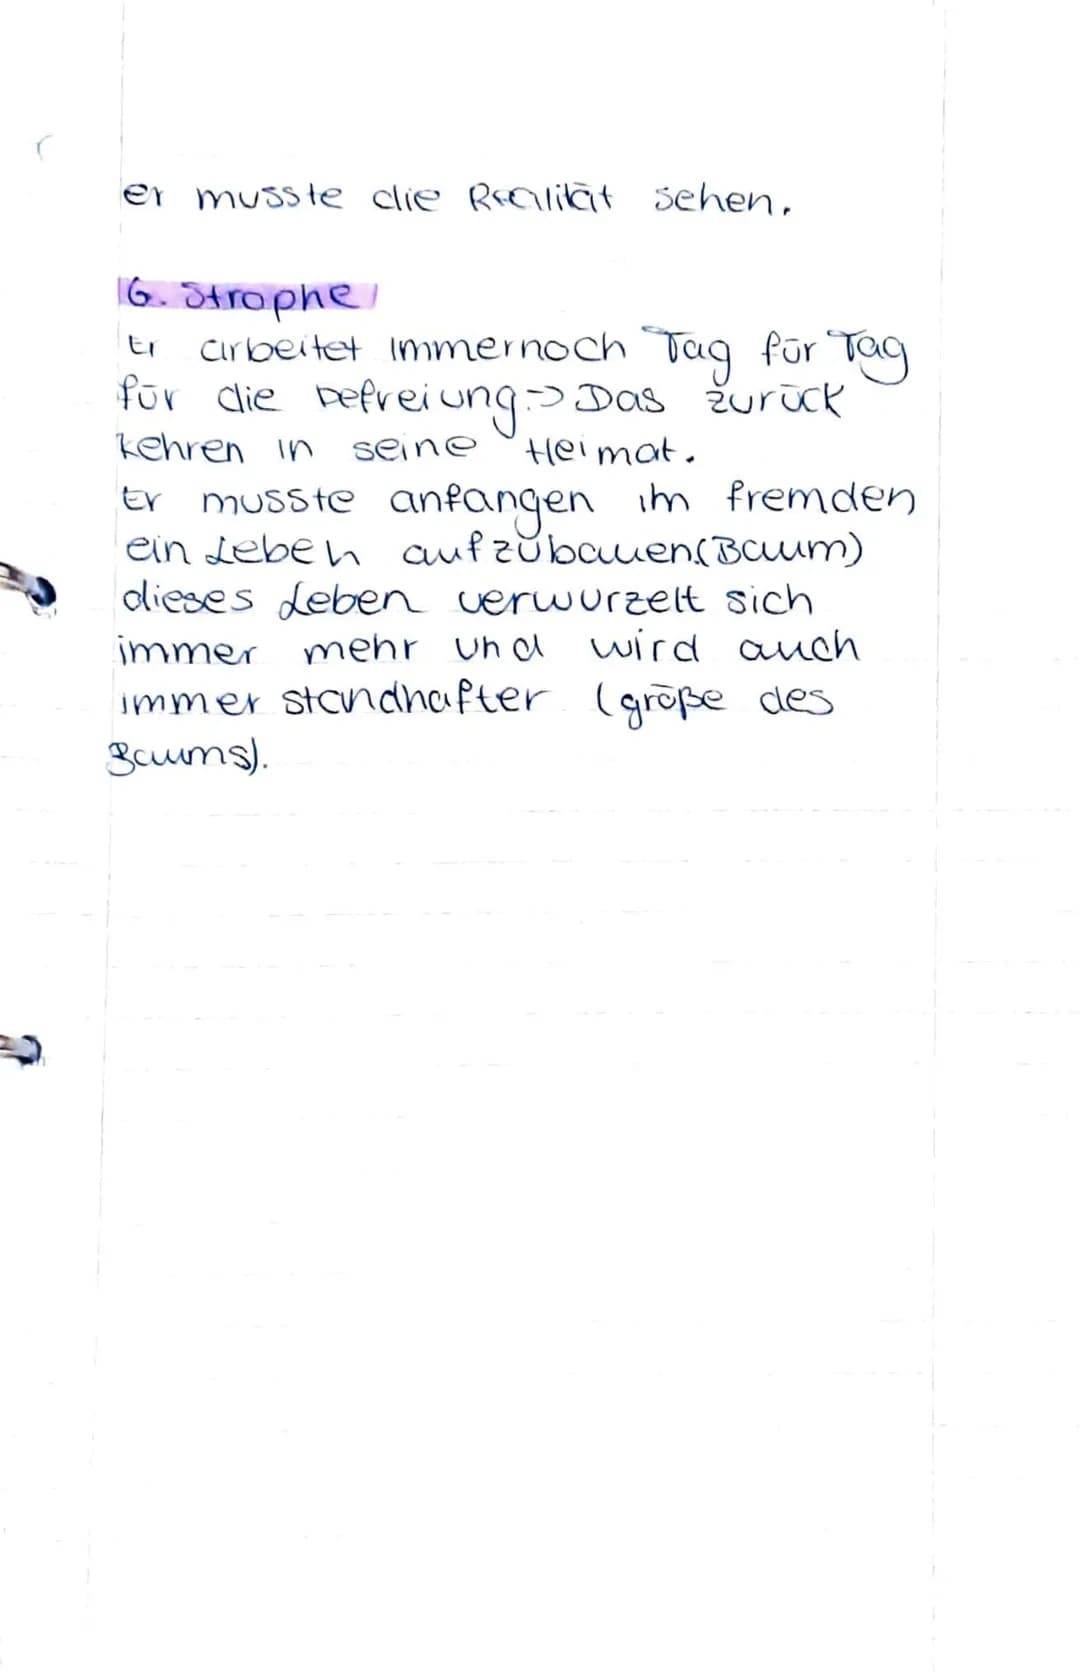 er musste die Realität sehen.
6. Strophe
Er arbeitet immernoch Tag für Tag
für die befreiung. -> Das zurück
kehren in seine Heimat.
Er musste anfangen im fremden
ein Leben aufzubauen (Baum)
dieses Leben verwurzelt sich
immer mehr und wird auch
immer standhafter (größe des
Baums).